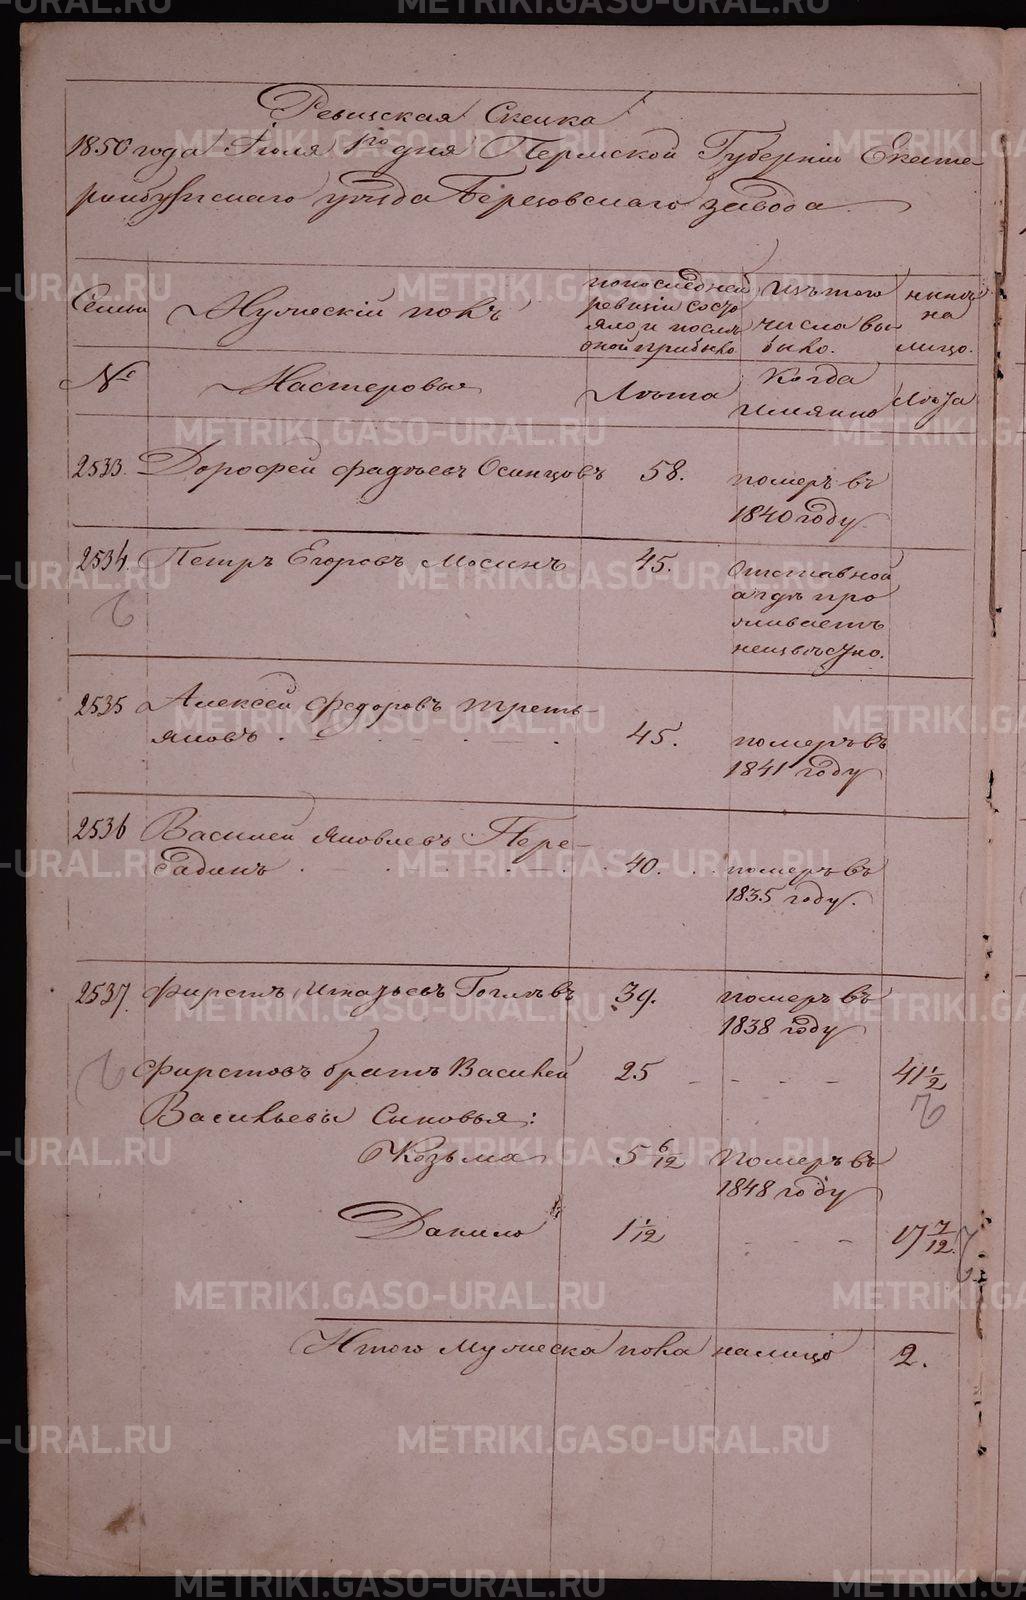 Ревизская Сказка
1850 года Июля 1го дня Пермской Губерніи Екате-
ринбургскаго уѣзда Березовскаго завода
Семьи
Мужескій полъ
по последней
ревизіи состо
яло и послѣ
оной прибыло
Изъ того
числа вы
было.
нынѣ
на
лицо.
№
Мастеровые
Лѣта
Когда
имянно
Лѣта
2533. Дорофей Фадѣевъ Осинцовъ 58. померъ въ
1840 году
2534. Петръ Егоровъ Мосинъ 45. Отставной
а гдѣ про
живаетъ
неизвѣстно.
2535 Алексей Федоровъ Треть-
яковъ 45. померъ въ
1841 году
2536 Василей Яковлевъ Пере-
40. померъ въ
1835 году.
2537. Фирстъ Игнатьевъ 39. померъ въ
1838 году
Фирстовъ братъ Василей 25 41 1/2
Васильевы Сыновья:
Козьма 5 6/12 Померъ въ
1848 году
Данило 1 1/12 17 7/12.
Итого мужеска пола налицо 2.
METRIKI.GASO-URAL.RU